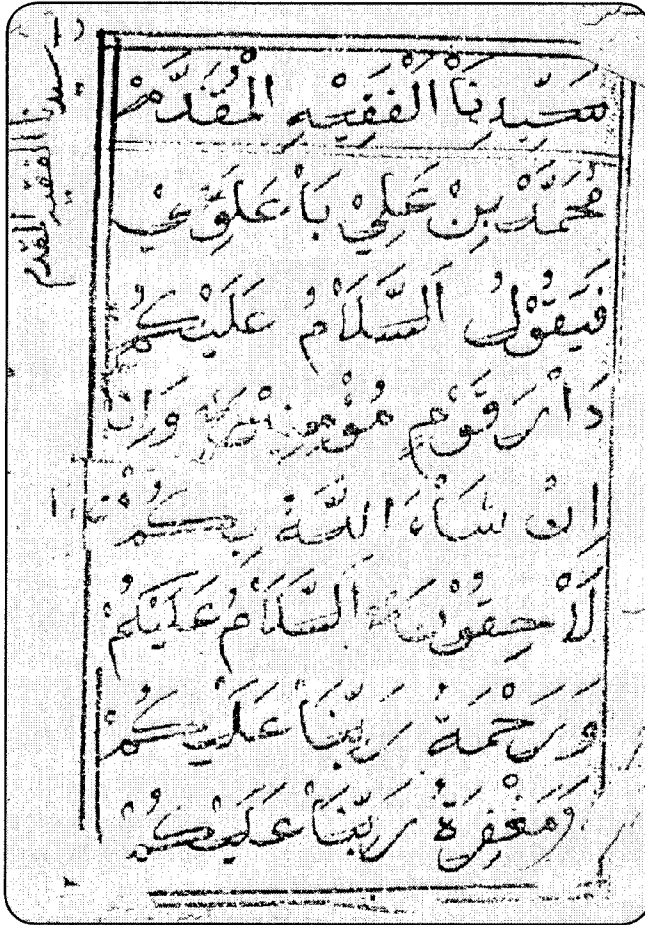 سَيِّدِنَا الْفَقِيْهِ الْمُقَدَّمْ
مُحَمَّدْ بِنْ عَلِيْ بَا عَلَوِيْ
فَيَقُوْلُ اَلسَّلَامُ عَلَيْكُمْ
دَارَ قَوْمٍ مُؤْمِنِيْنَ وَاِنَّا
اِنْ شَاءَ اللهُ بِكُمْ
لَاحِقُوْنَ اَلسَّلَامُ عَلَيْكُمْ
وَرَحْمَةُ رَبِّنَا عَلَيْكُمْ
وَمَغْفِرَةُ رَبِّنَا عَلَيْكُمْ
سيدنا الفقيه المقدم